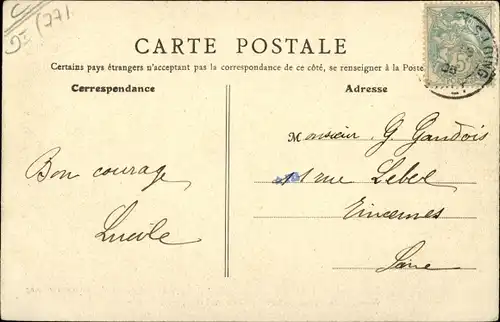 (77)
CARTE POSTALE
Certains pays étrangers n'acceptant pas la correspondance de ce côté, se renseigner à la Poste
Correspondance
Adresse
Monsieur G. Gaudois
1 rue Lebel
Vincennes
Seine
Bon courage
Lucile